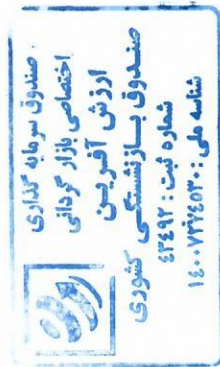 صندوق سرمایه گذاری
اختصاصی بازار گردانی
ارزش آفرین
صندوق بازنشستگی کشوری
شماره ثبت: ۴۳۴۹۲
شناسه ملی: ۱۴۰۰۷۳۲۶۵۳۰